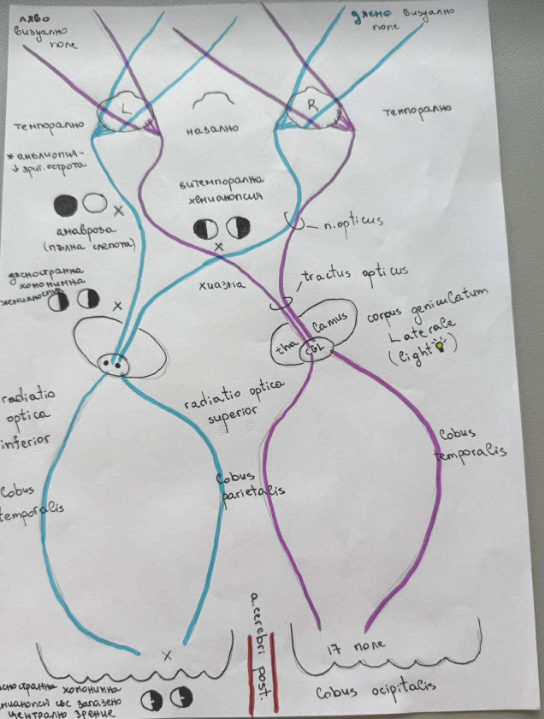 ляво
визуално
поле
дясно визуално
поле
L
R
темпорално
назално
темпорално
* амблиопия-
↓ зрит. острота
битемпорална
хемианопсия
X
амавроза
(пълна слепота)
X
n. opticus
дясностранна
хомонимна
X
хиазма
tractus opticus
thalamus
CGL
corpus geniculatum
Laterale
(light)
radiatio
optica
inferior
radiatio optica
superior
Lobus
temporalis
Lobus
parietalis
Lobus
temporalis
a. cerebri post.
X
17 поле
Lobus ocipitalis
хомонимна
със запазено
централно зрение